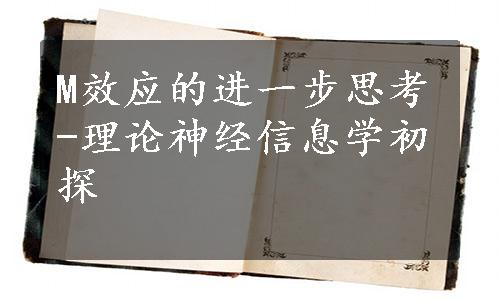 M效应的进一步思考
-理论神经信息学初
探